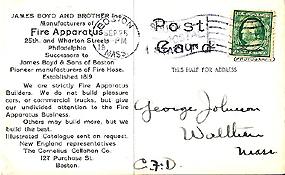 JAMES BOYD AND BROTHER
Manufacturers of
Fire Apparatus
25th. and Wharton Streets
Philadelphia
Successors to
James Boyd & Sons of Boston
Pioneer manufacturers of Fire Hose.
Established 1819
We are strictly Fire Apparatus
Builders. We do not build pleasure
cars, or commercial trucks, but give
our undivided attention to the Fire
Apparatus Business.
Others may build more, but we
build the best.
Illustrated Catalogue sent on request.
New England representatives
The Cornelius Callahan Co.
127 Purchase St.
Boston.
BOSTON
SEP 25
PM
MASS.
Post
Card
THIS HALF FOR ADDRESS
George Johnson
Waltham
Mass
C.F.D